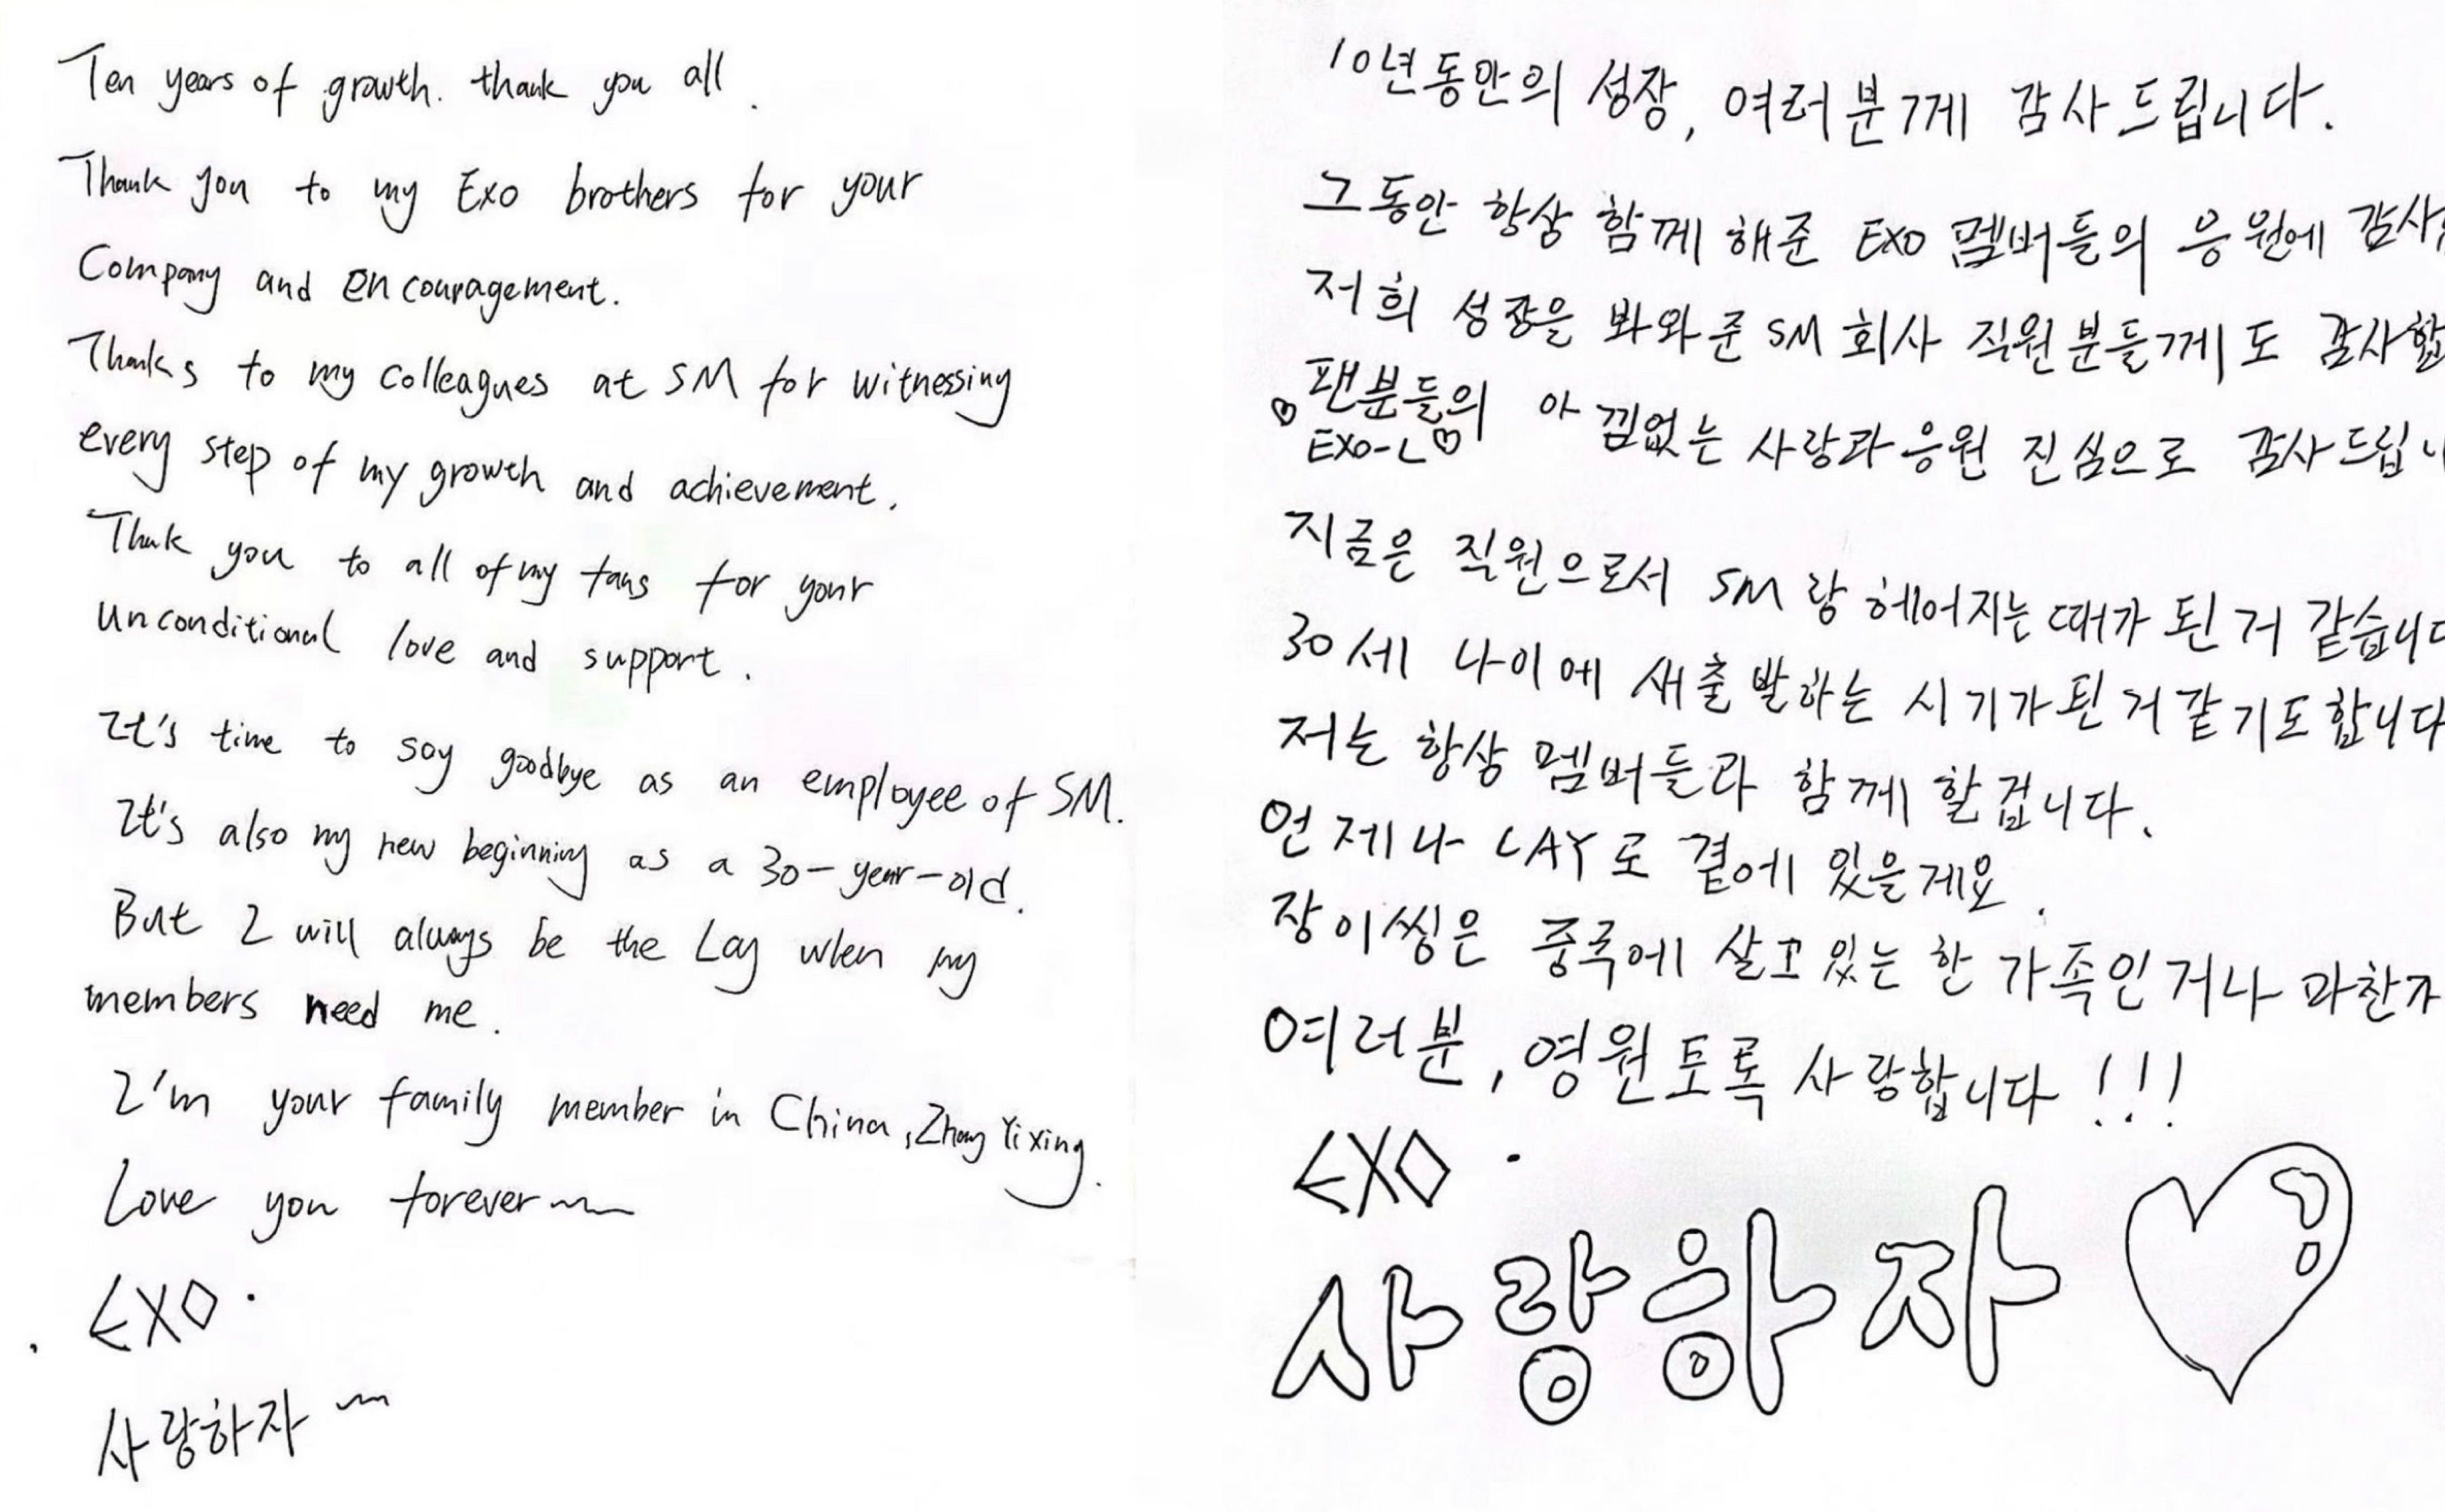 Ten years of growth. thank you all.
Thank you to my Exo brothers for your
Company and encouragement.
Thanks to my colleagues at SM for witnessing
every step of my growth and achievement.
Thank you to all of my fans for your
unconditional love and support.
It's time to say goodbye as an employee of SM.
It's also my new beginning as a 30-year-old.
But I will always be the Lay when my
members need me.
I'm your family member in China, Zhang Yixing.
Love you forever~
EXO.
사랑하자~
10년동안의 성장, 여러분께 감사드립니다.
그동안 항상 함께 해준 EXO 멤버들의 응원에 감사
저희 성장을 봐와준 SM 회사 직원분들께도 감사합
♡팬분들의 아낌없는 사랑과 응원 진심으로 감사드립니
EXO-L♡
지금은 직원으로서 SM랑 헤어지는 때가 된 거 같습니다
30세 나이에 새출발하는 시기가 된 거 같기도합니다
저는 항상 멤버들과 함께 할겁니다.
언제나 LAY로 곁에 있을게요.
장이씽은 중국에 살고있는 한 가족인거나 마찬가
여러분, 영원토록 사랑합니다!!!
EXO.
사랑하자♡